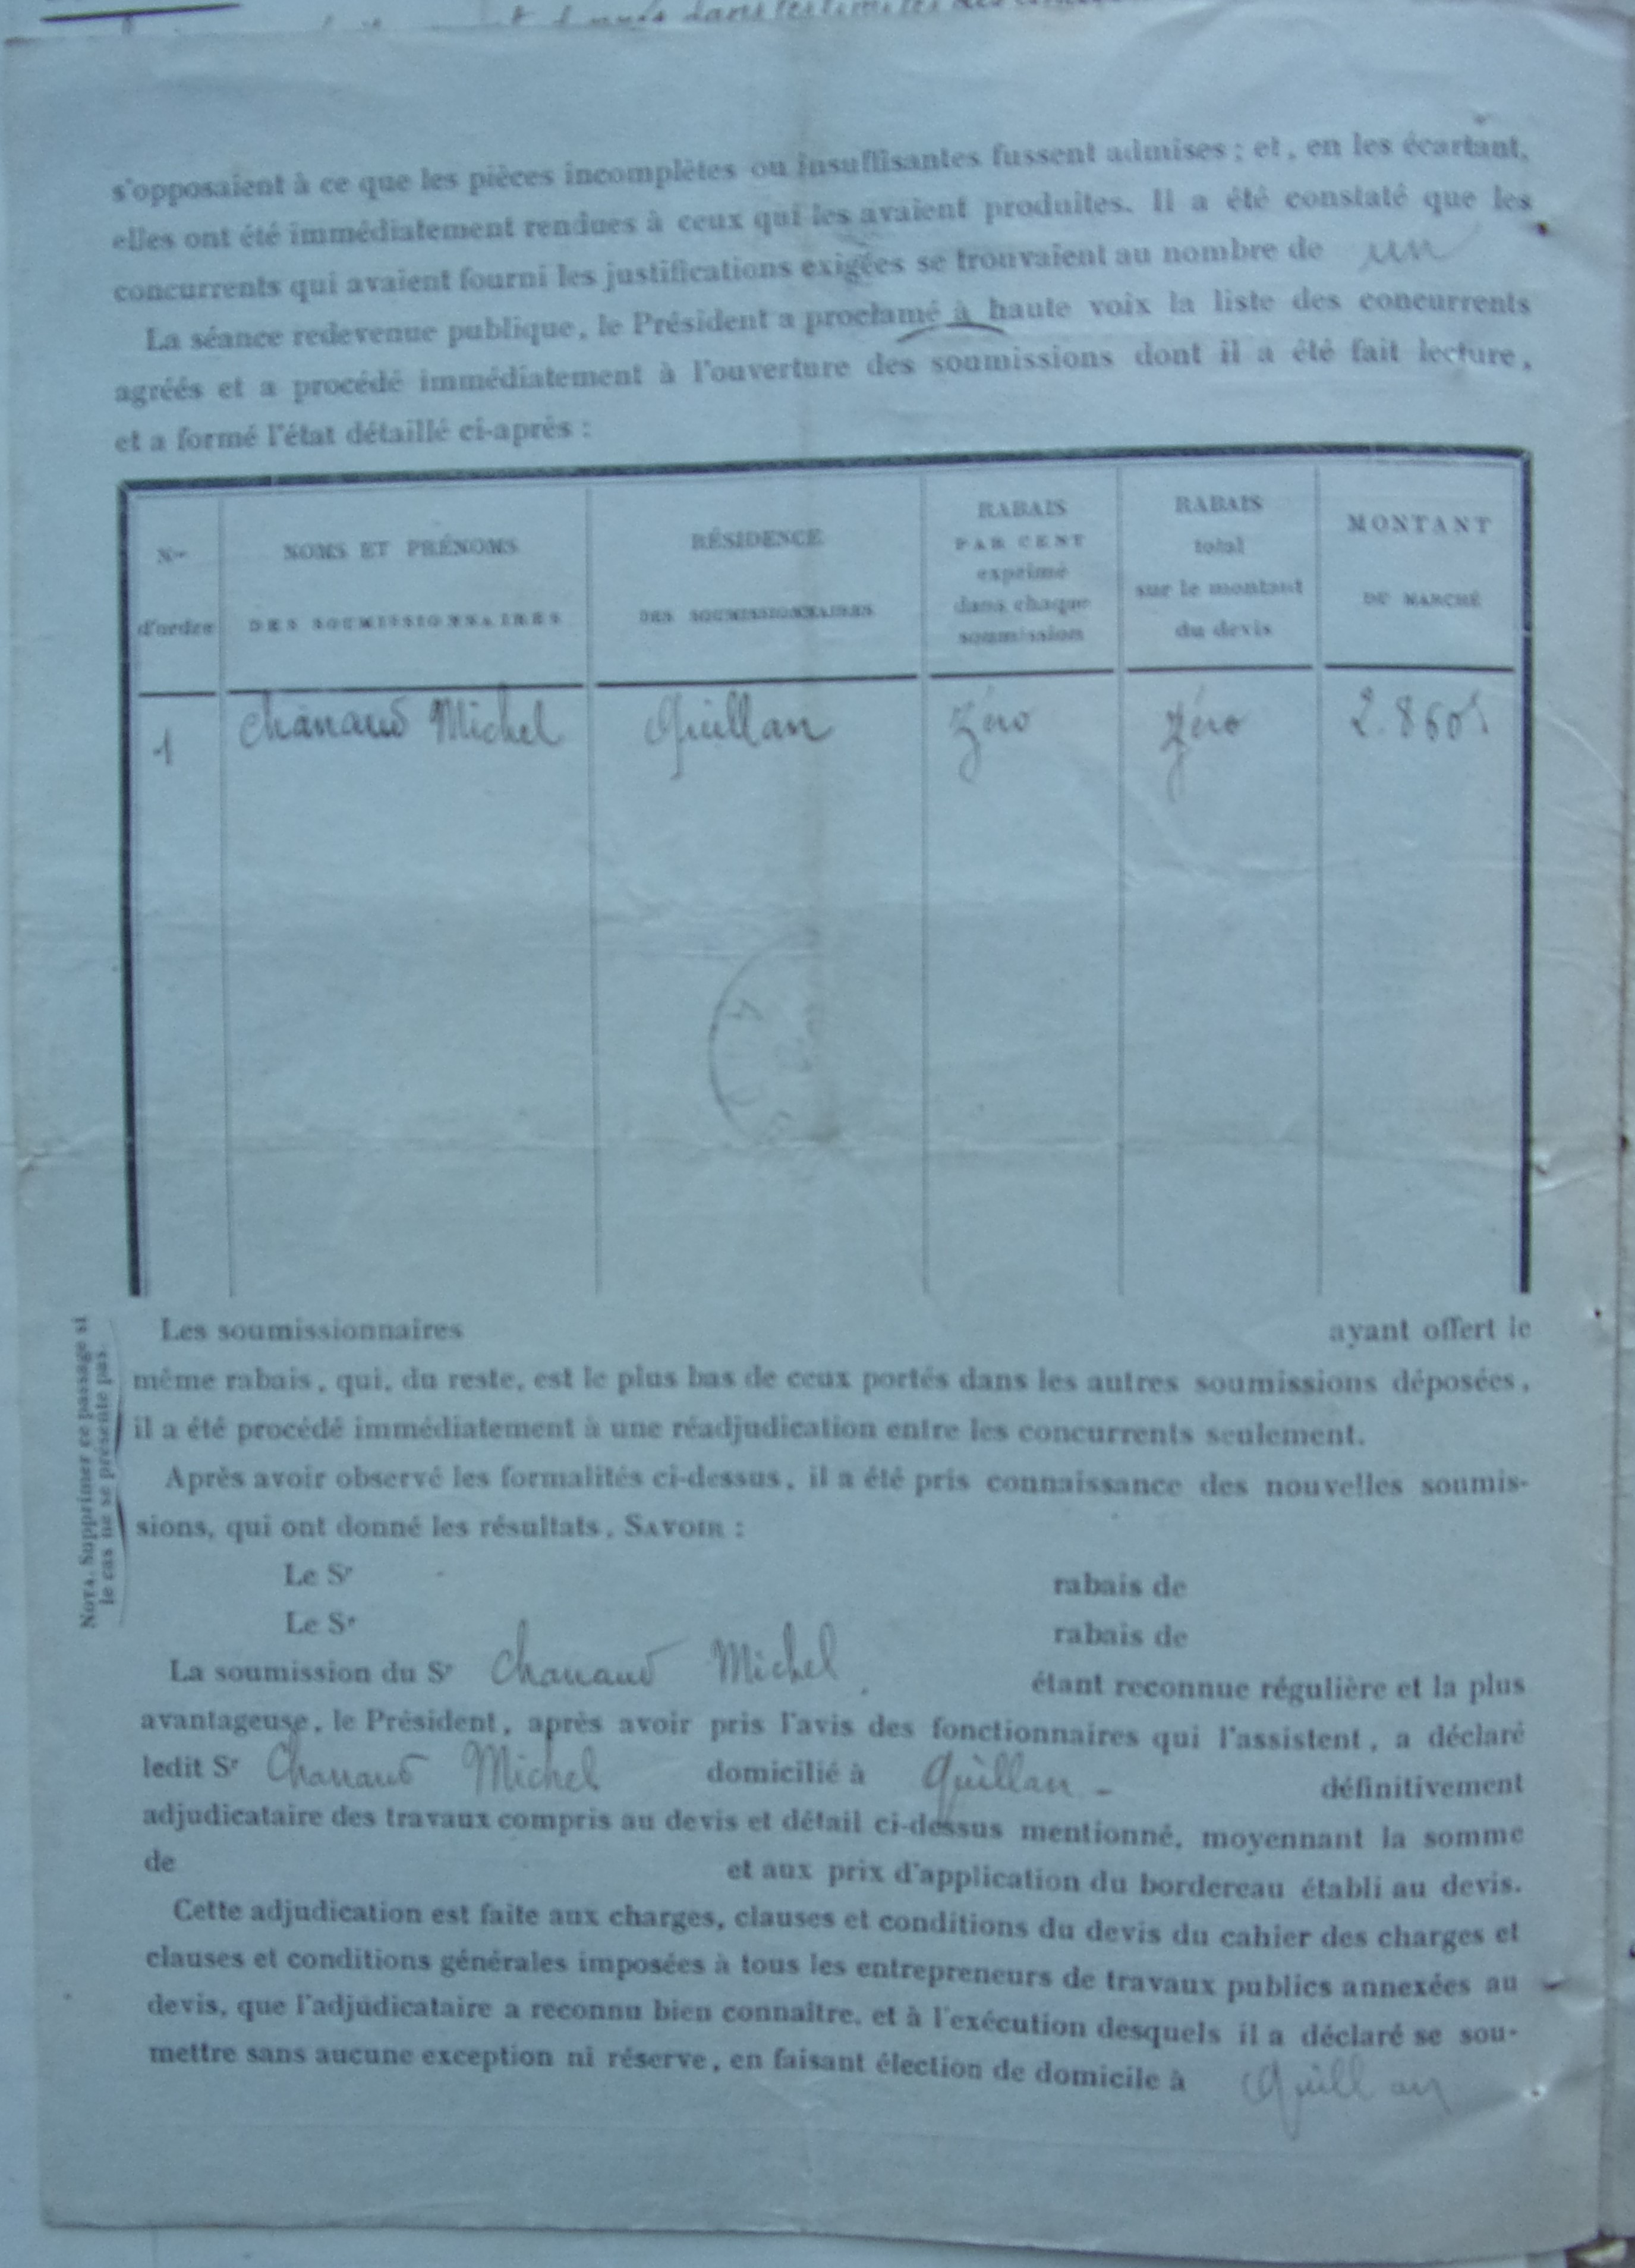 dans les limites des
s'opposaient à ce que les pièces incomplètes ou insuffisantes fussent admises ; et, en les écartant,
elles ont été immédiatement rendues à ceux qui les avaient produites. Il a été constaté que les
concurrents qui avaient fourni les justifications exigées se trouvaient au nombre de un
La séance redevenue publique, le Président a proclamé à haute voix la liste des concurrents
agréés et a procédé immédiatement à l'ouverture des soumissions dont il a été fait lecture,
et a formé l'état détaillé ci-après :
Nos
d'ordre
NOMS ET PRÉNOMS
DES SOUMISSIONNAIRES
RÉSIDENCE
DES SOUMISSIONNAIRES
RABAIS
PAR CENT
exprimé
dans chaque
soumission
RABAIS
total
sur le montant
du devis
MONTANT
DU MARCHÉ
1 Chanaud Michel Quillan zéro zéro 2.860f
Les soumissionnaires ayant offert le
même rabais, qui, du reste, est le plus bas de ceux portés dans les autres soumissions déposées,
il a été procédé immédiatement à une réadjudication entre les concurrents seulement.
Après avoir observé les formalités ci-dessus, il a été pris connaissance des nouvelles soumis-
sions, qui ont donné les résultats, SAVOIR :
NOTA. Supprimer ce passage si
le cas ne se présente pas.
Le Sr rabais de
Le Sr rabais de
La soumission du Sr Chanaud Michel étant reconnue régulière et la plus
avantageuse, le Président, après avoir pris l'avis des fonctionnaires qui l'assistent, a déclaré
ledit Sr Chanaud Michel domicilié à Quillan - définitivement
adjudicataire des travaux compris au devis et détail ci-dessus mentionné, moyennant la somme
de et aux prix d'application du bordereau établi au devis.
Cette adjudication est faite aux charges, clauses et conditions du devis du cahier des charges et
clauses et conditions générales imposées à tous les entrepreneurs de travaux publics annexées au
devis, que l'adjudicataire a reconnu bien connaître, et à l'exécution desquels il a déclaré se sou-
mettre sans aucune exception ni réserve, en faisant élection de domicile à Quillan